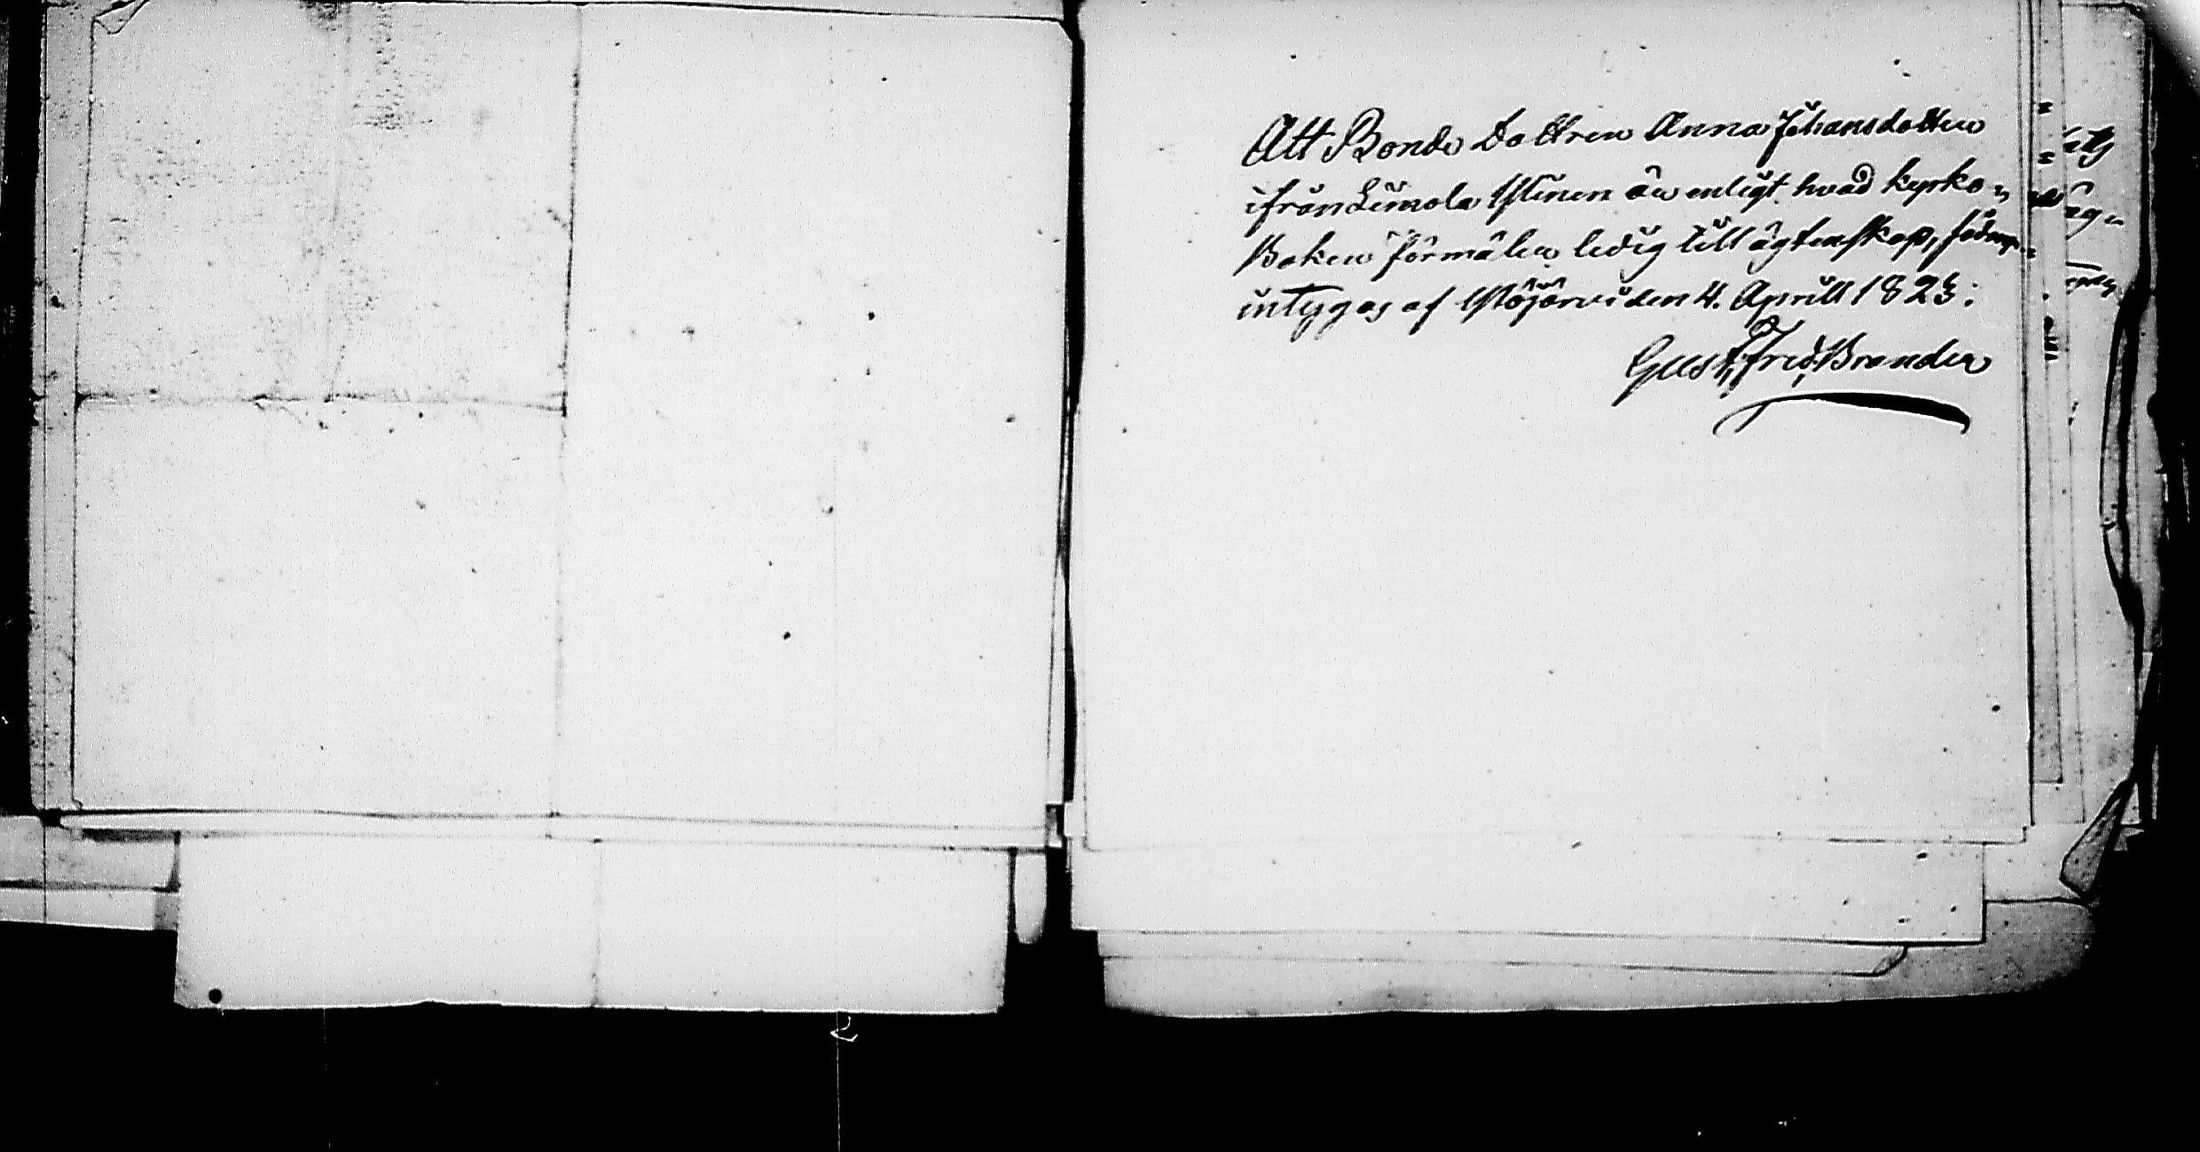 Att Bonde Dottren Anna Johansdotter
ifrån Limola Ylinen är enligt hvad kyrko-
Boken förmäler ledig till ägtenskap,
intygas af Ylöjärvi den 4. Aprill 1823:
Gust. Fred. Brander